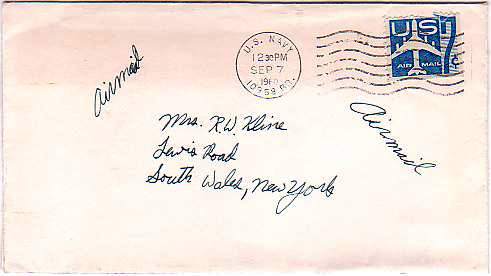 Airmail
U.S. NAVY
12 30 PM
SEP 7
1960
10259 BR.
US
7c
AIR MAIL
Airmail
Mrs. R.W. Kline
Lewis Road
South Wales, New York